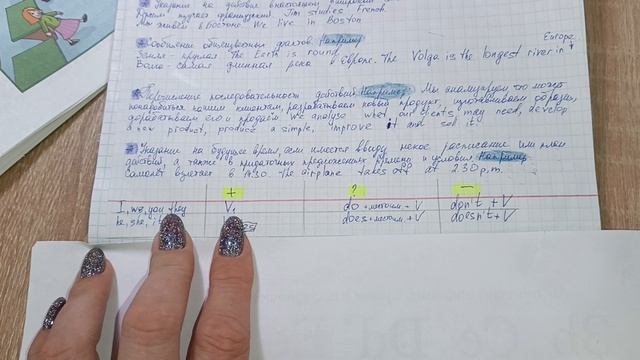 * Указание на действие в настоящем
Джим изучает французский. Jim studies French.
Мы живём в Бостоне. We live in Boston
* Сообщение общеизвестных фактов. Например
Europe.
Земля - круглая. The Earth is round.
Волга - самая длинная река в Европе. The Volga is the longest river in
* Перечисление последовательности действий. Например: Мы анализируем что может
понадобиться нашим клиентам, разрабатываем новый продукт, изготавливаем образец,
дорабатываем его и продаём. We analyse what our clients may need, develop
a new product, produce a simple, improve it and sell it.
* Указание на будущее время, если имеется ввиду некое расписание или план
действий, а также в придаточных предложениях времени и условия. Например
Самолёт взлетает в 14:30. The airplane takes off at 2:30 p.m.
+ ? -
I, we, you they V₁ do + местоим. + V don't + V
he, she, it do es + местоим + V doesn't + V